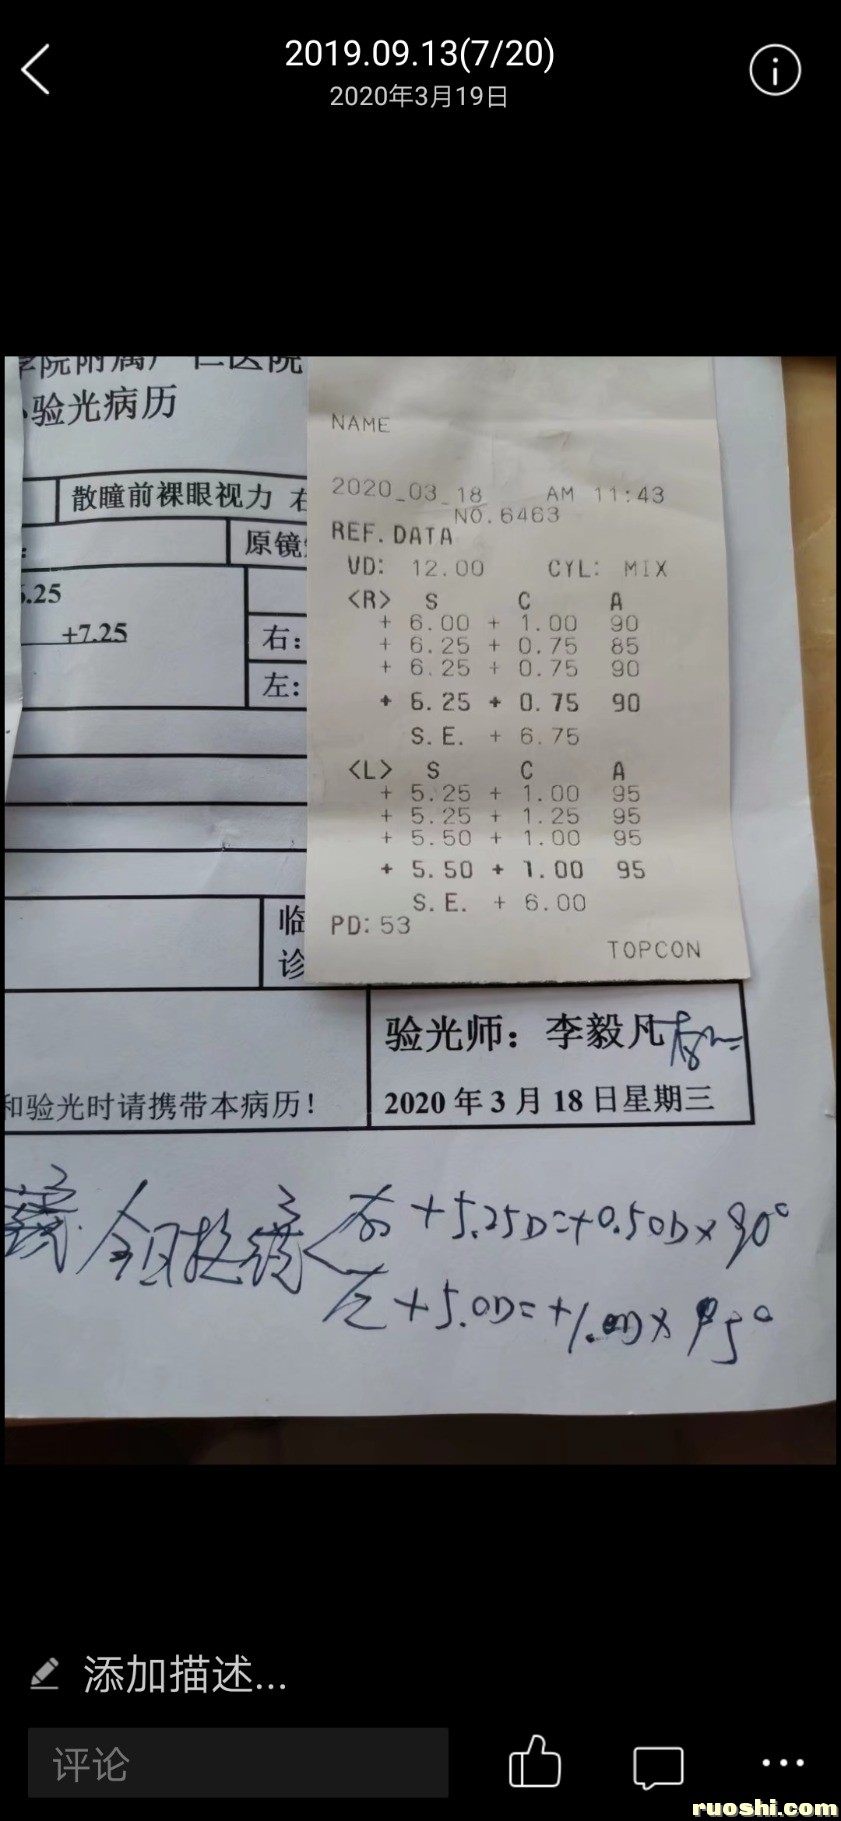 2019.09.13(7/20)
2020年3月19日
学院附属广仁医院
验光病历
散瞳前裸眼视力 右
原镜
.25
+7.25
右：
左：
临
诊
NAME
2020_03_18 AM 11:43
NO.6463
REF.DATA
VD: 12.00 CYL: MIX
<R> S C A
+ 6.00 + 1.00 90
+ 6.25 + 0.75 85
+ 6.25 + 0.75 90
+ 6.25 + 0.75 90
S.E. + 6.75
<L> S C A
+ 5.25 + 1.00 95
+ 5.25 + 1.25 95
+ 5.50 + 1.00 95
+ 5.50 + 1.00 95
S.E. + 6.00
PD: 53
TOPCON
验光师：李毅凡
和验光时请携带本病历！
2020 年 3 月 18 日星期三
右 +5.25D=+0.50D×90°
左 +5.0D=+1.0D×95°
添加描述...
评论
ruoshi.com